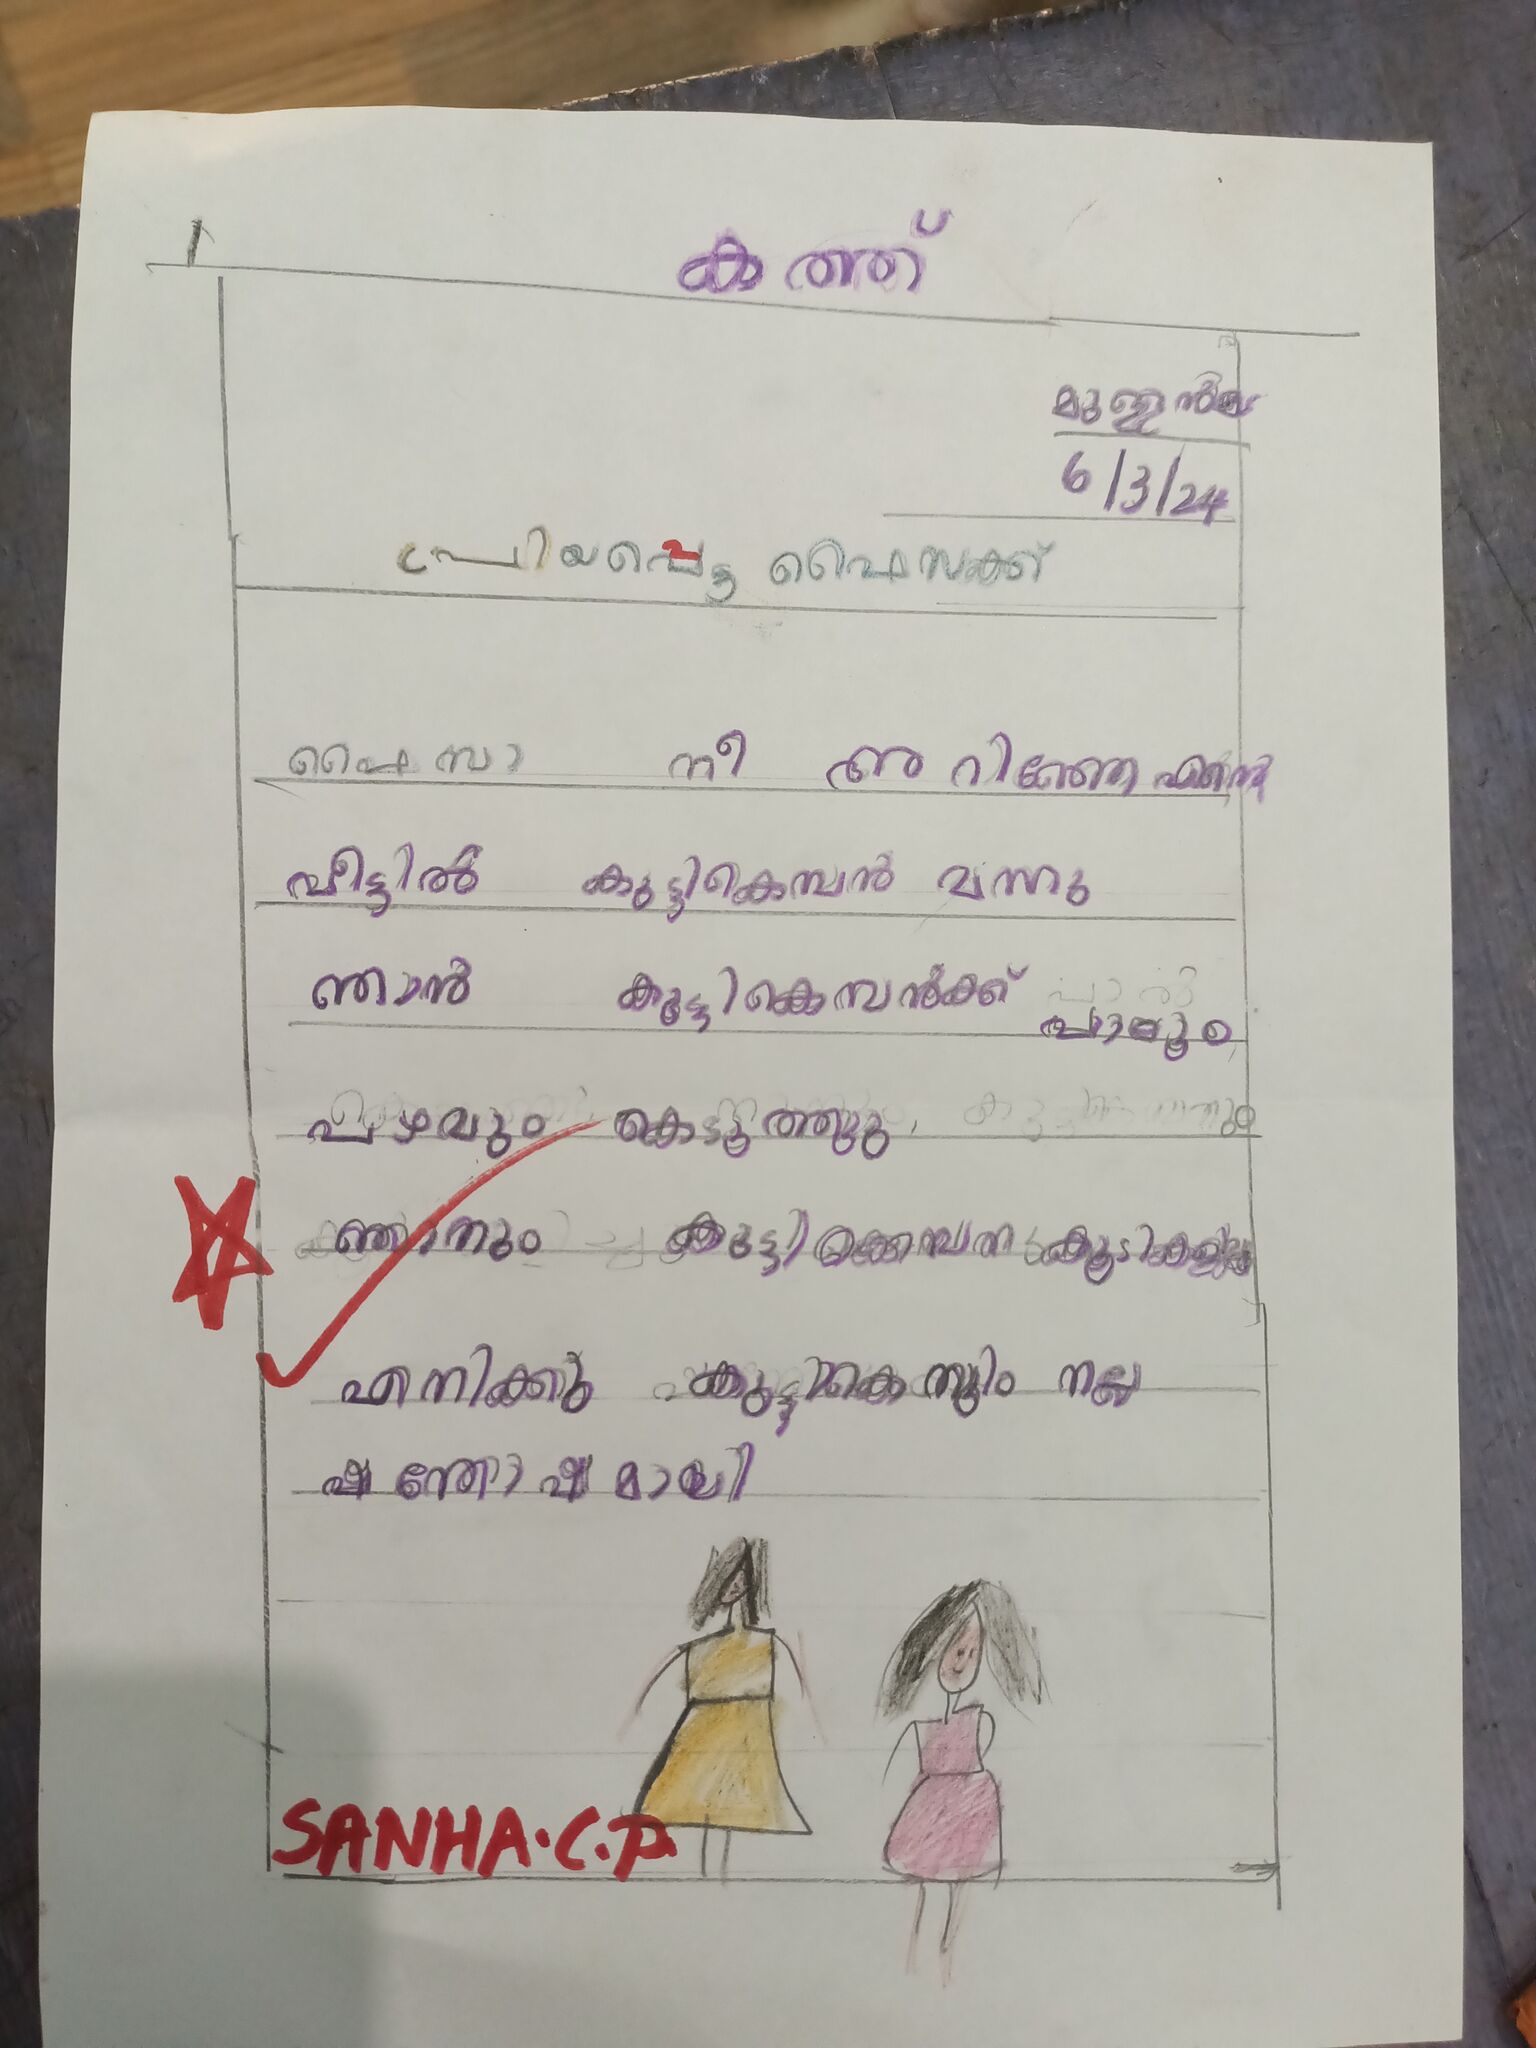 കത്ത്
6/3/24
പ്രിയപ്പെട്ട ഫൈസക്ക്
ഫൈസാ നീ അറിഞ്ഞോ എന്റെ
വീട്ടിൽ കുട്ടികൊമ്പൻ വന്നു
ഞാൻ കുട്ടികൊമ്പൻക്ക് പാലും
പഴവും കൊടുത്തു
ഞാനും കുട്ടികൊമ്പനും
എനിക്കും നല്ല
ഷന്തോഷമായി
SANHA.C.P.